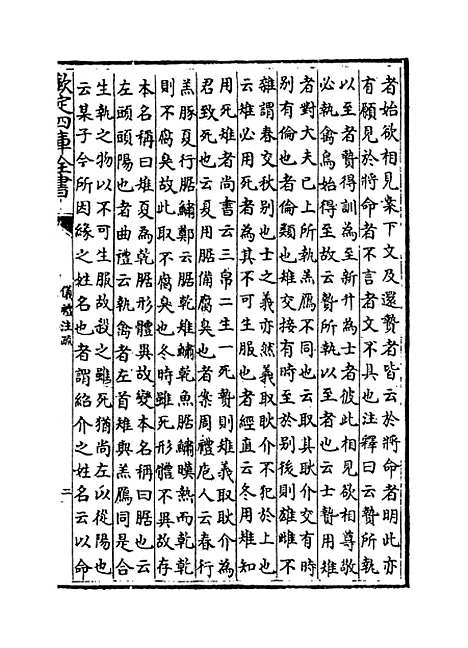 者始欲相見案下文及還贄者皆云於將命者明此亦
有願見於將命者不言者文不具也注釋曰云贄所執
以至者贄得訓為至新升為士者彼此相見欲相尊敬
必執禽鳥始得至故云贄所執以至者也云士贄用雉
者對大夫已上所執羔鴈不同也云取其耿介交有時
別有倫也者倫類也雉交接有時至於别後則雄雌不
雜謂春交秋别也士之義亦然義取耿介不犯於上也
云雉必用死者為其不可生服也者經直云冬用雉知
用死雉者尚書云三帛二生一死贄則雉義取耿介為
君致死也云夏用腒備腐臭也者案周禮庖人云春行
羔豚夏行腒鱐鄭云腒乾雉鱐乾魚腒鱐暵熱而乾乾
則不腐臭故此取不腐臭也冬時雖死形體不異故存
本名稱曰雉夏為乾腒形體異故變本名稱曰腒也云
左頭頭陽也者曲禮云執禽者左首雉與羔鴈同是合
生執之物以不可生服故殺之雖死猶尚左以從陽也
云某子今所因縁之姓名也者謂紹介之姓名云以命
欽定四庫全書
儀禮注疏
二